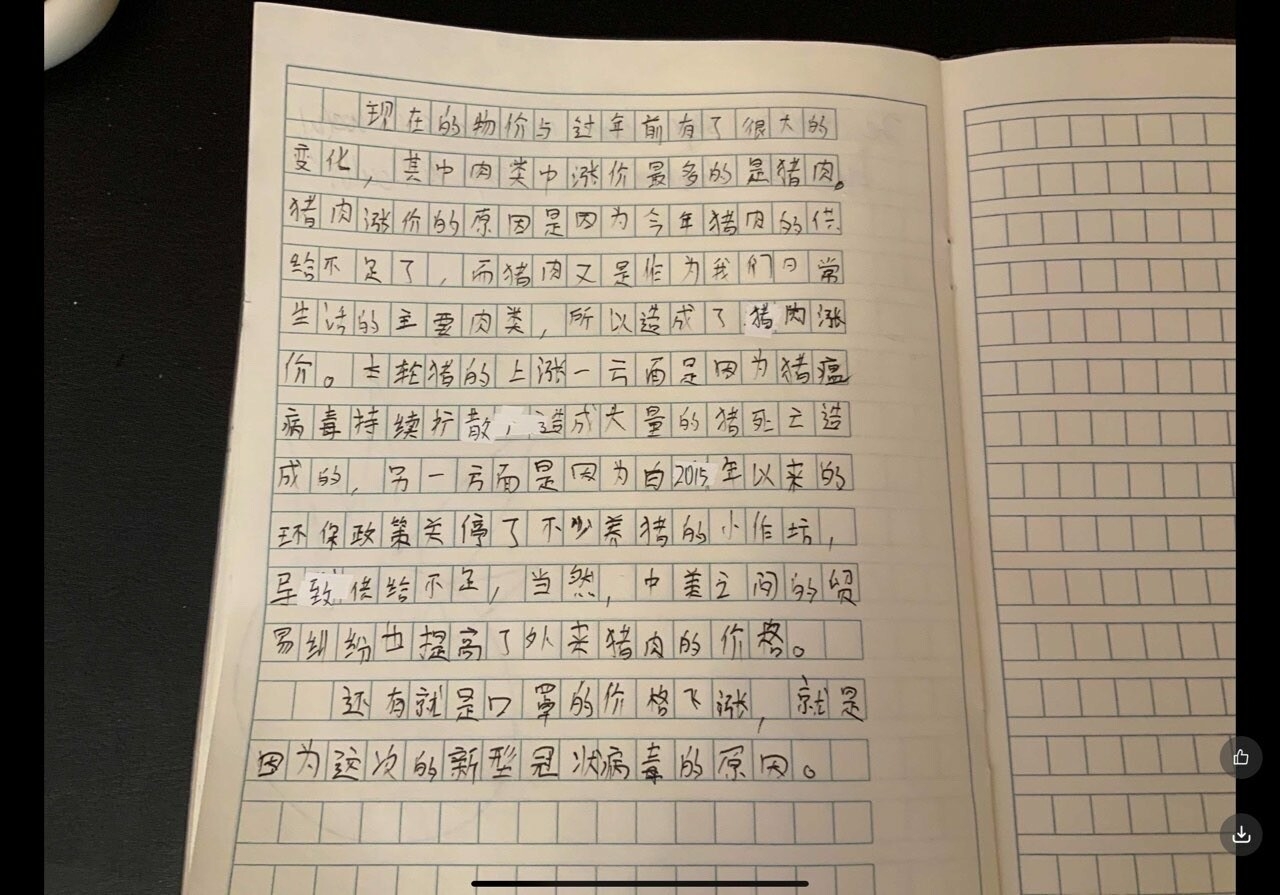 现在的物价与过年前有了很大的
变化，其中肉类中涨价最多的是猪肉。
猪肉涨价的原因是因为今年猪肉的供
给不足了，而猪肉又是作为我们日常
生活的主要肉类，所以造成了猪肉涨
价。去轮猪的上涨一方面是因为猪瘟
病毒持续扩散造成大量的猪死亡造
成的，另一方面是因为自2015年以来的
环保政策关停了不少养猪的小作坊，
导致供给不足，当然，中美之间的贸
易纠纷也提高了外来猪肉的价格。
还有就是口罩的价格飞涨，就是
因为这次的新型冠状病毒的原因。